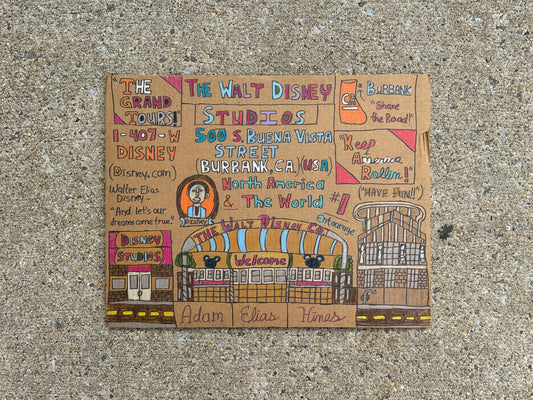 "The
Grand
Tours!"
1-407-W
Disney
(Disney.com)
Walter Elias
Disney-
"And let's our
dreams come true."
The Walt Disney
Studios
500 S. Buena Vista
Street
(Burbank, CA.)(USA)
North America
& The World #1
CA
Burbank
"Share
the Road!"
"Keep
America
Rollin!"
("Have Fun!!")
Disney
The Walt Disney Co.
Entourage
Welcome
Disney
Studios
Adam Elias Hines